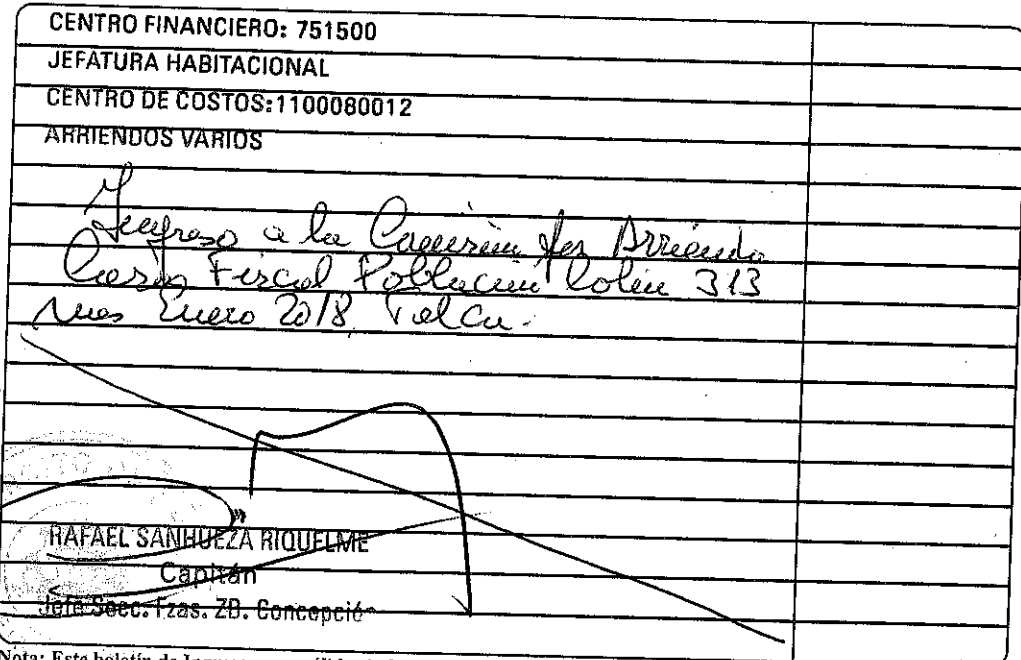 CENTRO FINANCIERO: 751500
JEFATURA HABITACIONAL
CENTRO DE COSTOS:1100080012
ARRIENDOS VARIOS
Ingreso a la por Arriendo
Casa Fiscal Población Colin 313
mes Enero 2018, Talca.
RAFAEL SANHUEZA RIQUELME
Capitán
Jefe Secc. Fzas. ZD. Concepción
Nota: Este boletín de